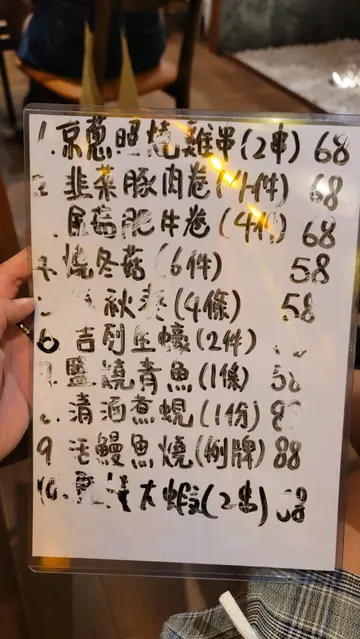 1. 京蔥照燒雞串(2串) 68
2 韮菜豚肉卷(4件) 68
肥牛卷(4件) 68
燒冬菇(6件) 58
秋葵(4條) 58
6 吉列生蠔(2件)
鹽燒青魚(1條) 58
清酒煮蜆(1份)
9 活鰻魚燒(例牌) 88
10. 大蝦(2串) 68